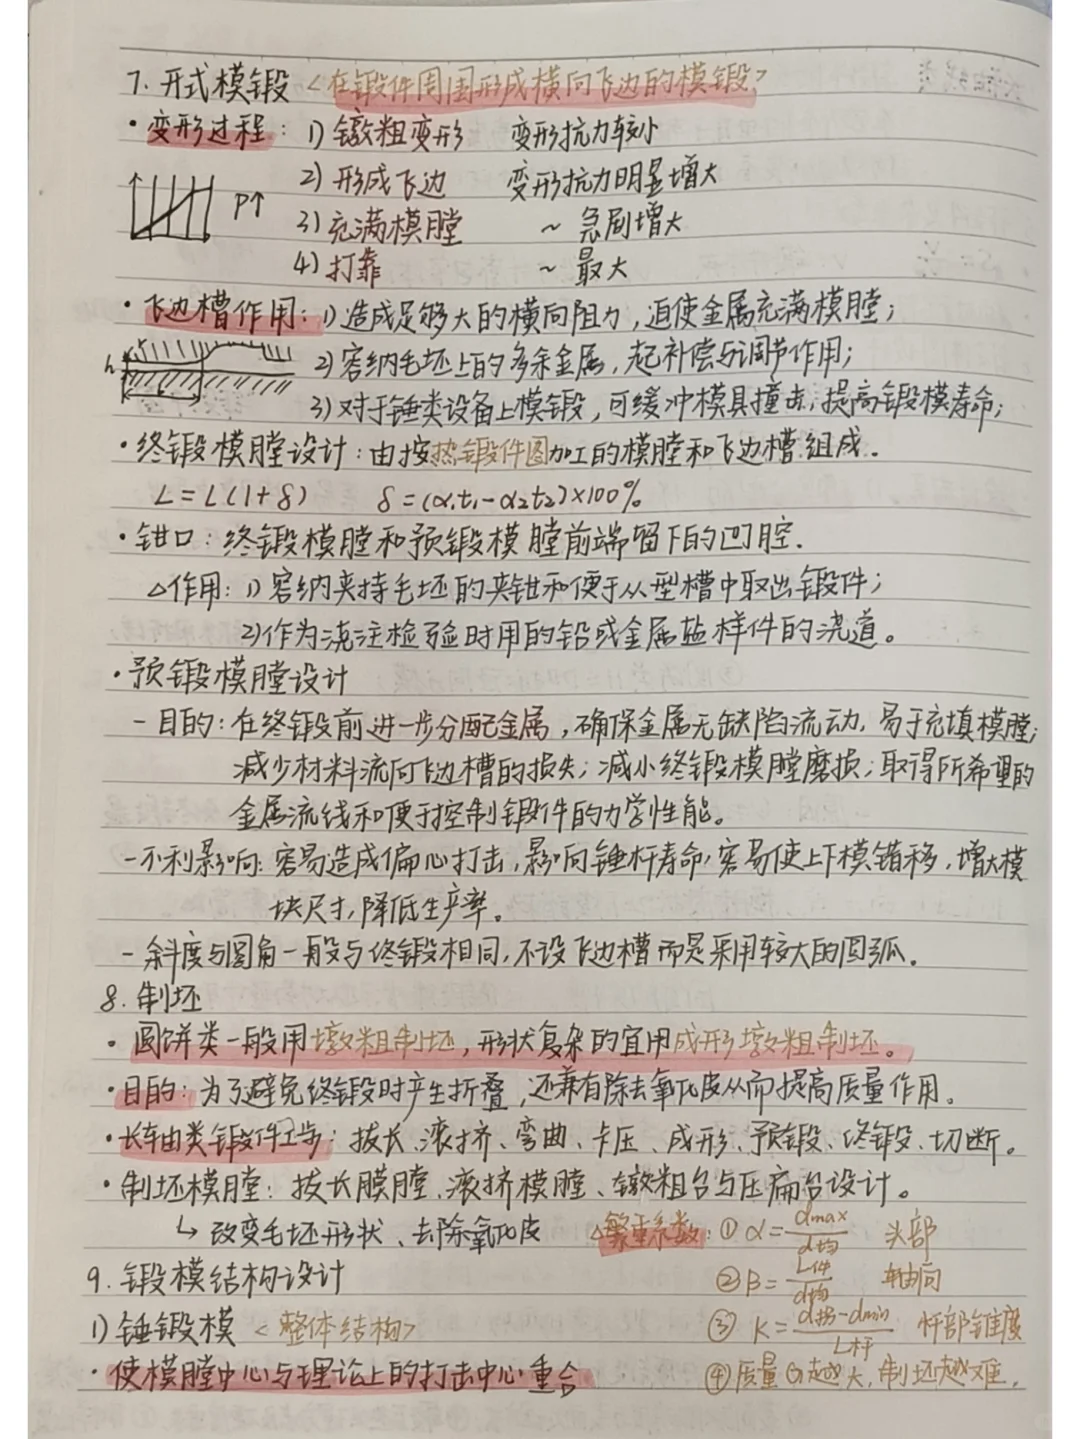 7. 开式模锻 <在锻件周围形成横向飞边的模锻>
·变形过程: 1) 镦粗变形 变形抗力较小
2) 形成飞边 变形抗力明显增大
P↑
3) 充满模膛 ~ 急剧增大
4) 打靠 ~ 最大
·飞边槽作用: 1) 造成足够大的横向阻力,迫使金属充满模膛;
h 2) 容纳毛坯上的多余金属,起补偿与调节作用;
3) 对于锤类设备上模锻,可缓冲模具撞击,提高锻模寿命;
·终锻模膛设计: 由按热锻件图加工的模膛和飞边槽组成.
L=L(1+δ) δ=(α₁t₁-α₂t₂)×100%
·钳口: 终锻模膛和预锻模膛前端留下的凹腔.
△作用: 1) 容纳夹持毛坯的夹钳和便于从型槽中取出锻件;
2) 作为浇注检验时用的铅或金属盐样件的浇道。
·预锻模膛设计
- 目的: 在终锻前进一步分配金属,确保金属无缺陷流动,易于充填模膛;
减少材料流向飞边槽的损失;减小终锻模膛磨损;取得所希望的
金属流线和便于控制锻件的力学性能。
- 不利影响: 容易造成偏心打击,影响锤杆寿命,容易使上下模错移,增大模
块尺寸,降低生产率。
- 斜度与圆角一般与终锻相同,不设飞边槽而是采用较大的圆弧。
8. 制坯
·圆饼类一般用墩粗制坯,形状复杂的宜用成形墩粗制坯。
·目的: 为了避免终锻时产生折叠,还兼有除去氧化皮从而提高质量作用.
·长轴类锻件工步: 拔长、滚挤、弯曲、卡压、成形、预锻、终锻、切断。
·制坯模膛: 拔长膜膛、滚挤模膛、镦粗台与压扁台设计。
↳ 改变毛坯形状、去除氧化皮 △繁重系数: ① α=dmax/d均 头部
9. 锻模结构设计 ② β=L件/d均 轴向
1) 锤锻模 <整体结构> ③ K=(d拐-dmin)/L杆 杆部锥度
·使模膛中心与理论上的打击中心重合 ④ 质量G越大,制坯越难.